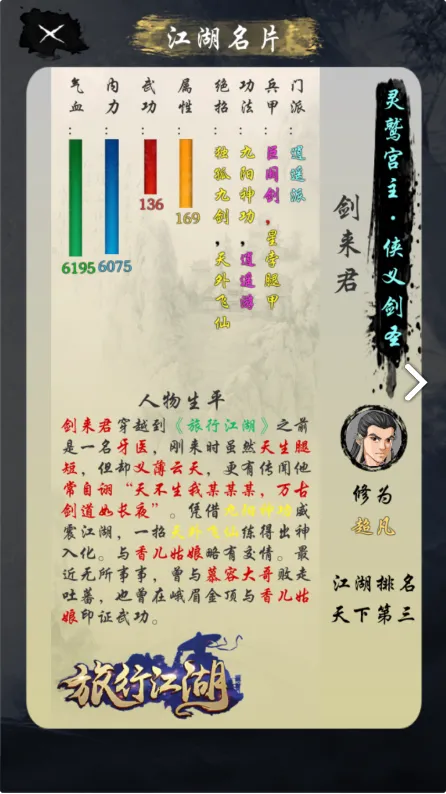 江湖名片
灵鹫宫主·侠义剑圣
剑来君
门派：逍遥派
兵甲：巨阙剑，星孛腿甲
功法：九阳神功，逍遥游
绝招：独孤九剑，天外飞仙
属性：169
武功：136
内力：6075
气血：6195
修为
超凡
江湖排名
天下第三
人物生平
剑来君穿越到《旅行江湖》之前
是一名牙医，刚来时虽然天生腿
短，但却义薄云天，更有传闻他
常自诩“天不生我某某某，万古
剑道如长夜”。凭借九阳神功威
震江湖，一招天外飞仙练得出神
入化。与香儿姑娘略有交情。最
近无所事事，曾与慕容大哥败走
吐蕃，也曾在峨眉金顶与香儿姑
娘印证武功。
旅行江湖